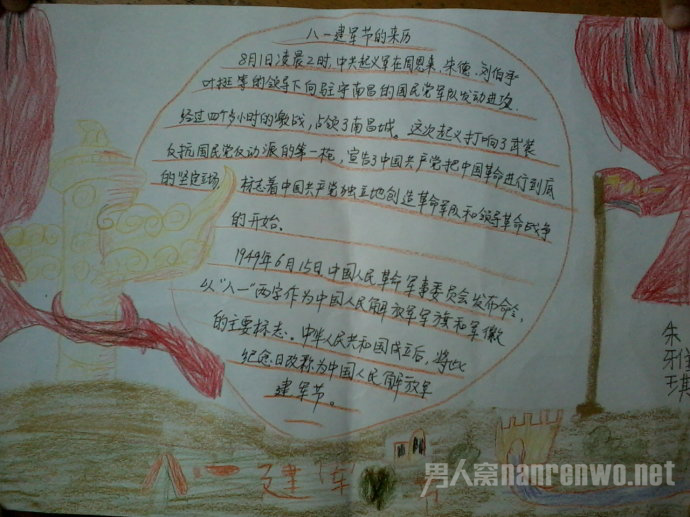 八一建军节的来历
8月1日凌晨2时,中共起义军在周恩来、朱德、刘伯承
叶挺等的领导下向驻守南昌的国民党军队发动进攻.
经过四个多小时的激战,占领了南昌城。这次起义打响了武装
反抗国民党反动派的第一枪,宣告了中国共产党把中国革命进行到底
的坚定立场,标志着中国共产党独立地创造革命军队和领导革命战争
的开始。
1949年6月15日中国人民革命军事委员会发布命令,
以“八一”两字作为中国人民解放军军旗和军徽
的主要标志。中华人民共和国成立后,将此
纪念日改称为中国人民解放军
建军节。
朱
琪
八一建军
男人窝nanrenwo.net